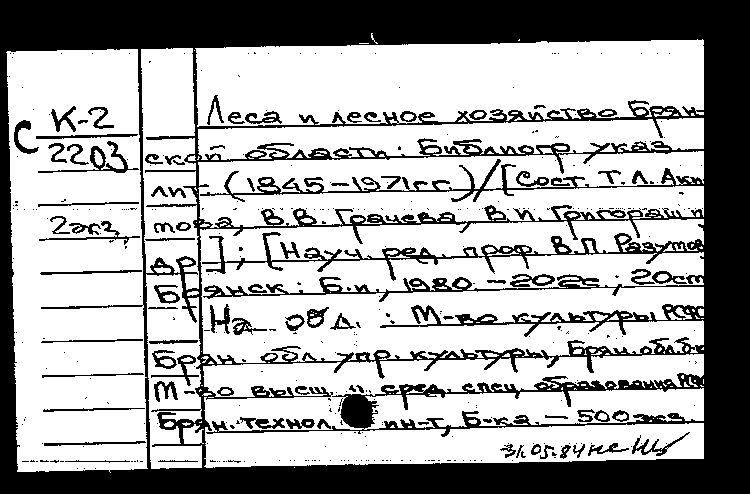 К-2
С 2203
2экз.
Леса и лесное хозяйство Брян-
ской области: Библиогр. указ.
лит. (1845-1971гг.)/[Сост. Т.Л. Аки-
това, В.В. Грачева, В.И. Григораш и
др]; [Науч. ред. проф. В.П. Разумов
Брянск: Б.и., 1980. - 202с.; 20см
На обл.: М-во культуры РСФС
Брян. обл. упр. культуры, Брян. обл. б-к
М-во высш. и сред. спец. образования РСФ
Брян. технол. ин-т, Б-ка. - 500экз.
31.05.84